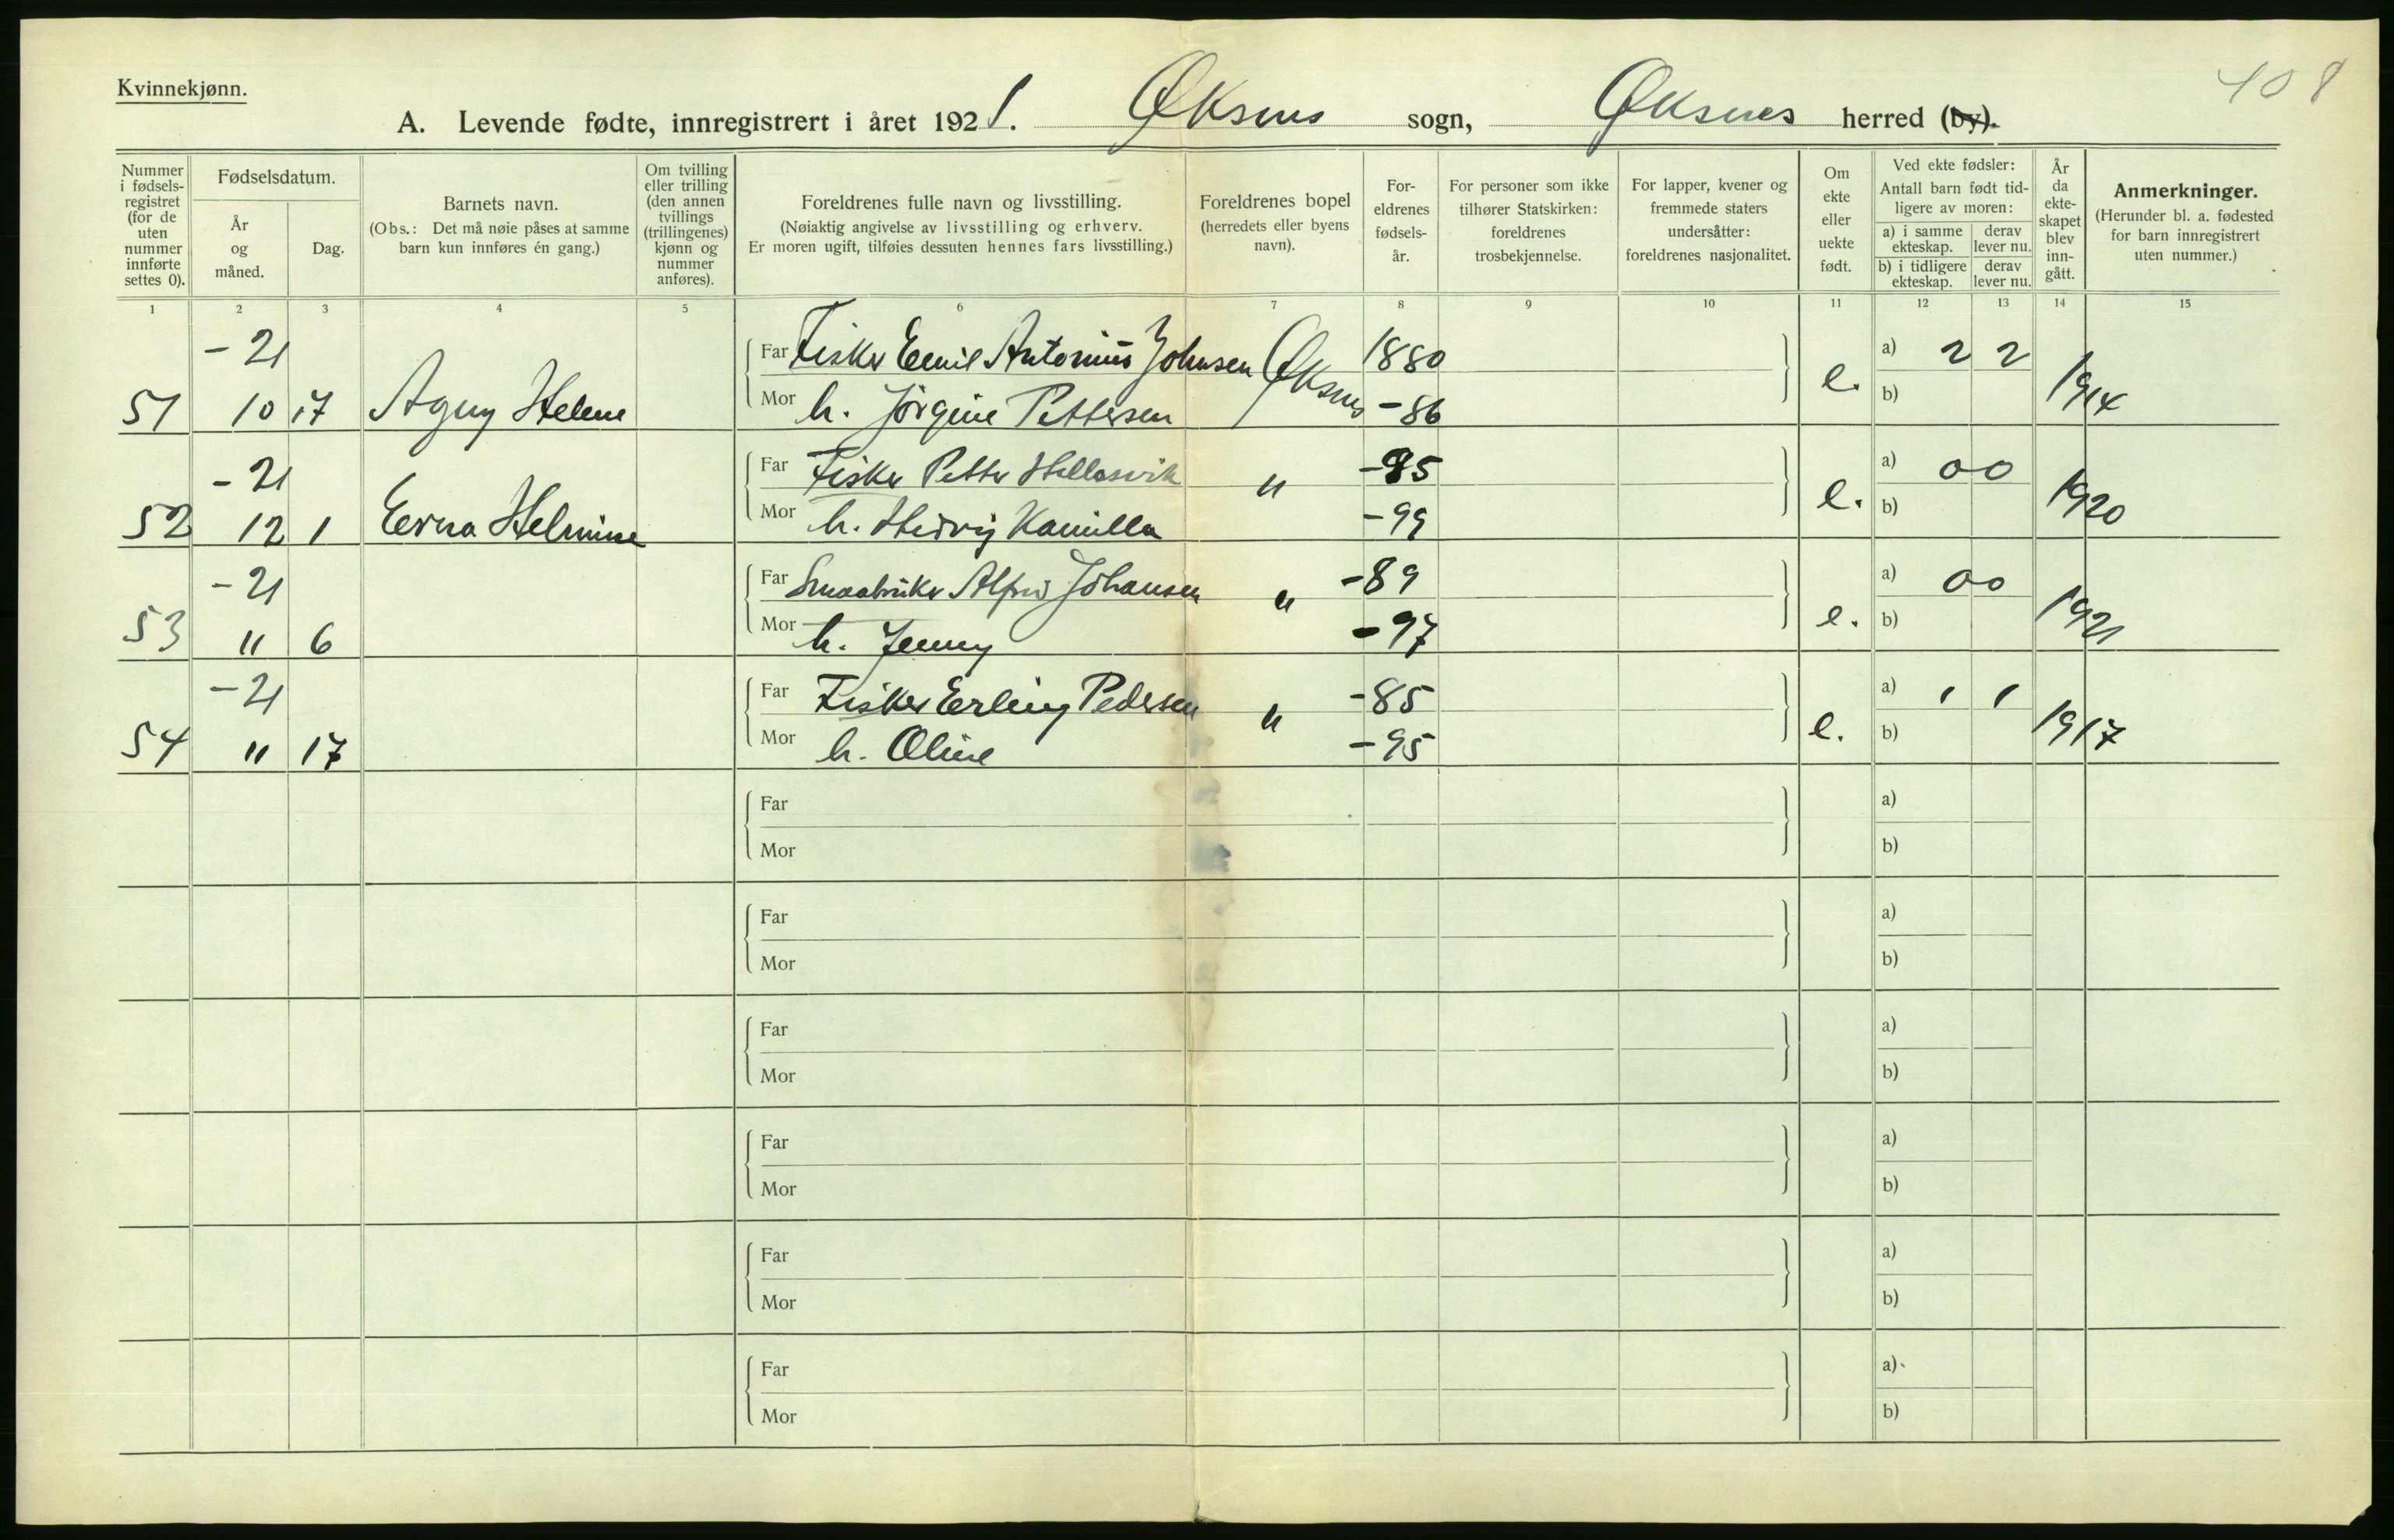 Kvinnekjønn.
408
A. Levende fødte, innregistrert i året 1921. Øksnes sogn, Øksnes herred (by).
Nummer i fødsels-registret (for de uten nummer innførte settes 0).
Fødselsdatum.
År og måned.
Dag.
Barnets navn.
(Obs.: Det må nøie påses at samme barn kun innføres én gang.)
Om tvilling eller trilling (den annen tvillings (trillingenes) kjønn og nummer anføres).
Foreldrenes fulle navn og livsstilling.
(Nøiaktig angivelse av livsstilling og erhverv.
Er moren ugift, tilføies dessuten hennes fars livsstilling.)
Foreldrenes bopel
(herredets eller byens navn).
For-eldrenes fødsels-år.
For personer som ikke tilhører Statskirken: foreldrenes trosbekjennelse.
For lapper, kvener og fremmede staters undersåtter: foreldrenes nasjonalitet.
Om ekte eller uekte født.
Ved ekte fødsler:
Antall barn født tid-ligere av moren:
a) i samme ekteskap.
derav lever nu.
b) i tidligere ekteskap.
derav lever nu.
År da ekte-skapet blev inn-gått.
Anmerkninger.
(Herunder bl. a. fødested for barn innregistrert uten nummer.)
1 2 3 4 5 6 7 8 9 10 11 12 13 14 15
-21 Far Fisker Emil Antonius Johnsen Øksnes 1880 a) 2 2
51 10 17 Agny Helene Mor h. Jörgine Pettersen -86 e. b) 1914
-21 Far Fisker Petter " -95 a) 0 0
52 12 1 Erna Helmine Mor h. Hedvig Kamilla -99 e. b) 1920
-21 Far Smaabruker Alfred Johansen " -89 a) 0 0
53 " 6 Mor h. Jenny -97 e. b) 1921
-21 Far Fisker Erling Pedersen " -85 a) 1 1
54 " 17 Mor h. Oline -95 e. b) 1917
Far a)
Mor b)
Far a)
Mor b)
Far a)
Mor b)
Far a)
Mor b)
Far a)
Mor b)
Far a)
Mor b)